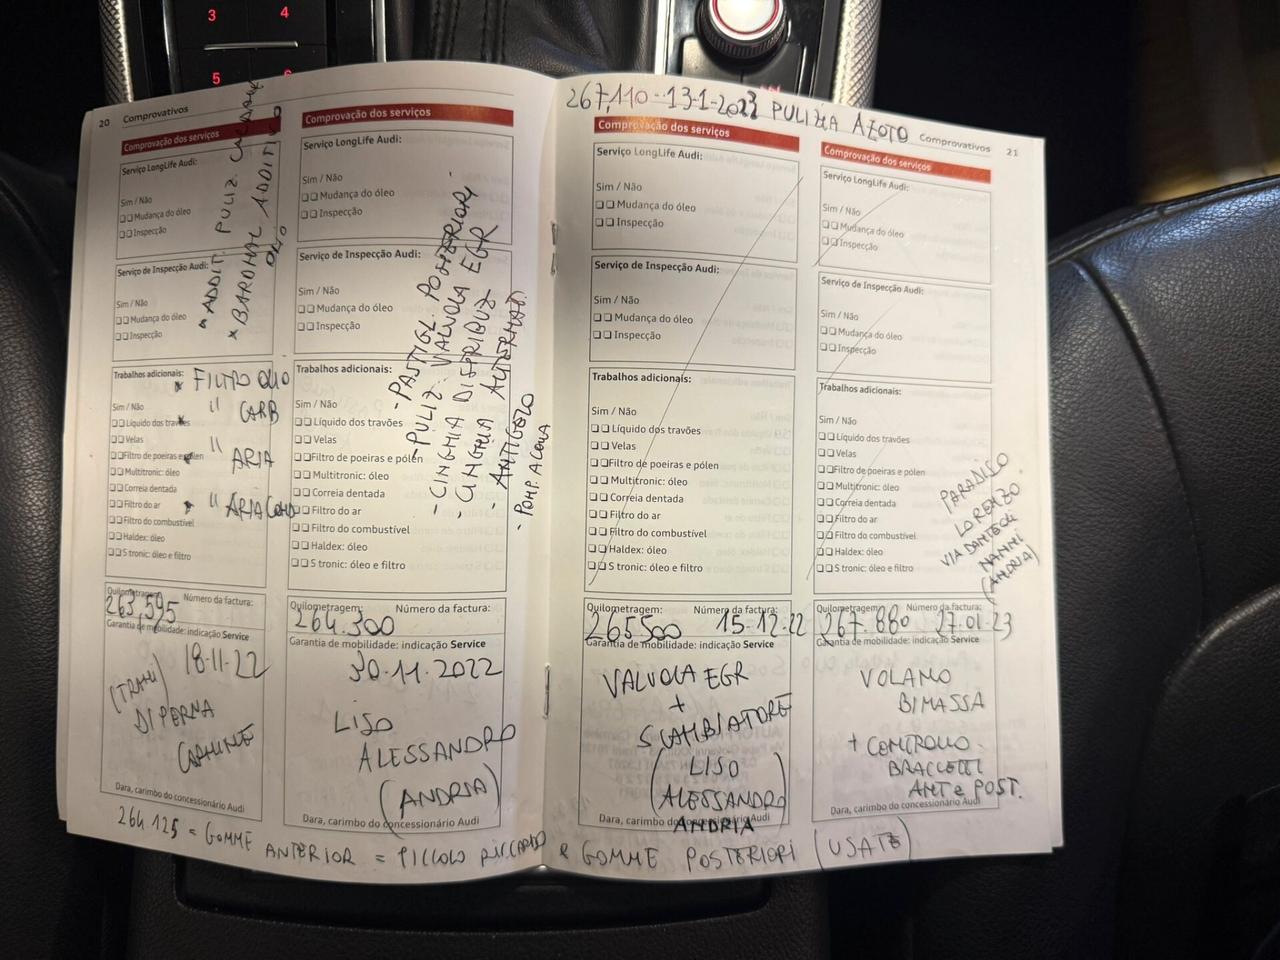 3 4
5 6
20 Comprovativos
Comprovação dos serviços
Serviço LongLife Audi:
Sim / Não
Mudança do óleo
Inspecção
Serviço de Inspecção Audi:
Sim / Não
Mudança do óleo
Inspecção
Trabalhos adicionais:
Sim / Não
Líquido dos travões
Velas
Filtro de poeiras e pólen
Multitronic: óleo
Correia dentada
Filtro do ar
Filtro do combustível
Haldex: óleo
S tronic: óleo e filtro
ADDIT. PULIZ.
BARDHAL ADDITIVO
OLIO
FILTRO OLIO
" CARB
" ARIA
" ARIA COND
Quilometragem: Número da factura:
263,595
Garantia de mobilidade: indicação Service
18-11-22
(TRANI)
DI PERNA
CARMINE
Dara, carimbo do concessionário Audi
Comprovação dos serviços
Serviço LongLife Audi:
Sim / Não
Mudança do óleo
Inspecção
Serviço de Inspecção Audi:
Sim / Não
Mudança do óleo
Inspecção
Trabalhos adicionais:
Sim / Não
Líquido dos travões
Velas
Filtro de poeiras e pólen
Multitronic: óleo
Correia dentada
Filtro do ar
Filtro do combustível
Haldex: óleo
S tronic: óleo e filtro
- PASTIGL. POSTERIORI -
- PULIZ. VALVOLA EGR
- CINGHIA DISTRIBUZ
- CINGHIA ALTERNAT.
- ANTIGELO
- POMP. ACQUA
Quilometragem: Número da factura:
264.300
Garantia de mobilidade: indicação Service
30-11-2022
LISO
ALESSANDRO
(ANDRIA)
Dara, carimbo do concessionário Audi
264.125 = GOMME ANTERIOR = PICCOLO RICCARDO e GOMME POSTERIORI (USATE)
267,110 - 13-1-2023 PULIZIA AZOTO
Comprovativos 21
Comprovação dos serviços
Serviço LongLife Audi:
Sim / Não
Mudança do óleo
Inspecção
Serviço de Inspecção Audi:
Sim / Não
Mudança do óleo
Inspecção
Trabalhos adicionais:
Sim / Não
Líquido dos travões
Velas
Filtro de poeiras e pólen
Multitronic: óleo
Correia dentada
Filtro do ar
Filtro do combustível
Haldex: óleo
S tronic: óleo e filtro
Quilometragem: Número da factura:
265500 15-12-22
Garantia de mobilidade: indicação Service
VALVOLA EGR
+
SCAMBIATORE
(LISO
ALESSANDRO)
Dara, carimbo do concessionário Audi
ANDRIA
Comprovação dos serviços
Serviço LongLife Audi:
Sim / Não
Mudança do óleo
Inspecção
Serviço de Inspecção Audi:
Sim / Não
Mudança do óleo
Inspecção
Trabalhos adicionais:
Sim / Não
Líquido dos travões
Velas
Filtro de poeiras e pólen
Multitronic: óleo
Correia dentada
Filtro do ar
Filtro do combustível
Haldex: óleo
S tronic: óleo e filtro
PARADISO
LORENZO
VIA
NANNI
(ANDRIA)
Quilometragem: Número da factura:
267.880 27-01-23
Garantia de mobilidade: indicação Service
VOLANO
BIMASSA
+ CONTROLLO
BRACCETTI
ANT e POST.
Dara, carimbo do concessionário Audi